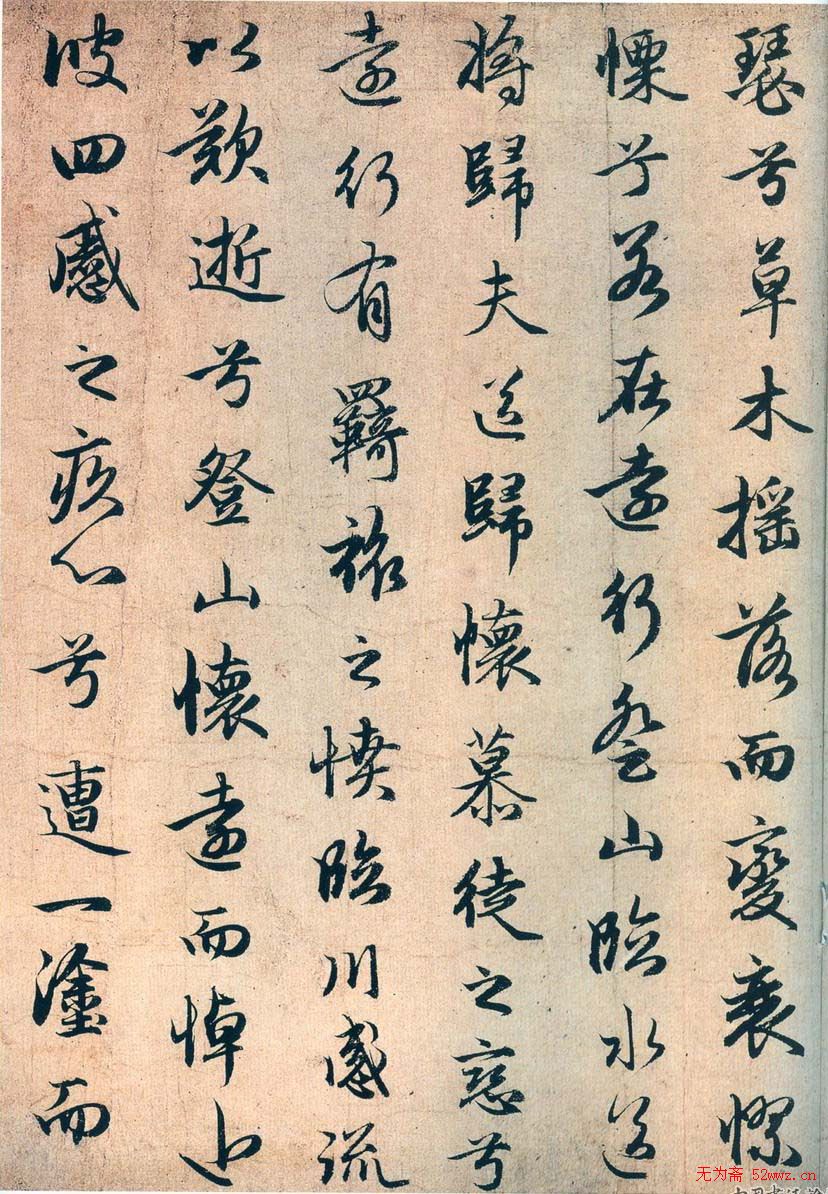 瑟兮草木搖落而變衰憭
慄兮若在遠行登山臨水送
將歸夫送歸懷慕徒之戀兮
遠行有羈旅之憤臨川感流
以歎逝兮登山懷遠而悼近
彼四慼之疚心兮遭一塗而
无为斋 52wwz.cn